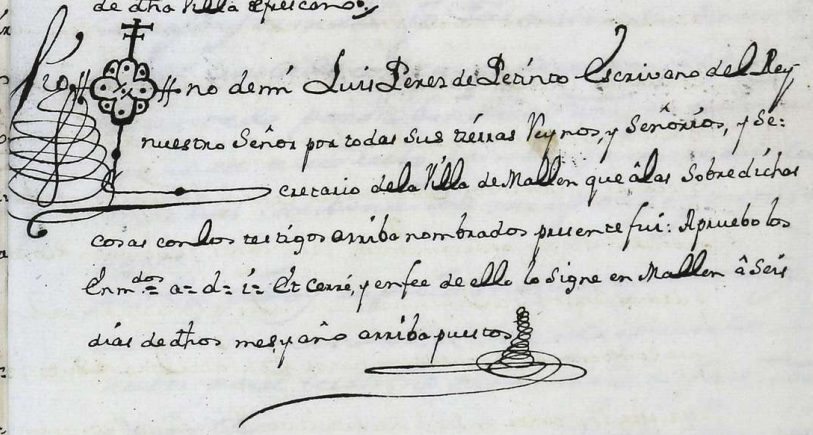 de dha Villa
Sig##no de mi Luis Perez de Petinto Escrivano del Rey
nuestro Señor por todas sus tierras Reynos, y Señorios, y Se:
cretario dela Villa de Mallen que â las Sobre dichas
cosas con los testigos arriba nombrados presente fui: Apruebo los
Enm.dos = a= d= i= Et cerré, y enfee de ello lo Signe en Mallen â Seis
dias de dhos mes, y año arriba puestos